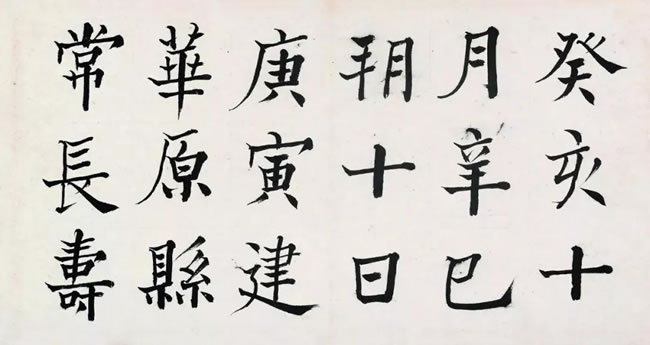 癸亥十
月辛巳
朔十日
庚寅建
華原縣
常長壽